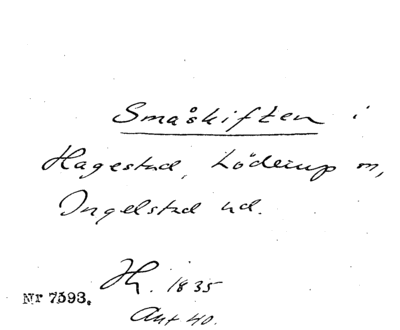 Småskiften i
Hagestad, Löderup m,
Ingelstad hd.
Hh. 1835
Ant 40.
Nr 7593.